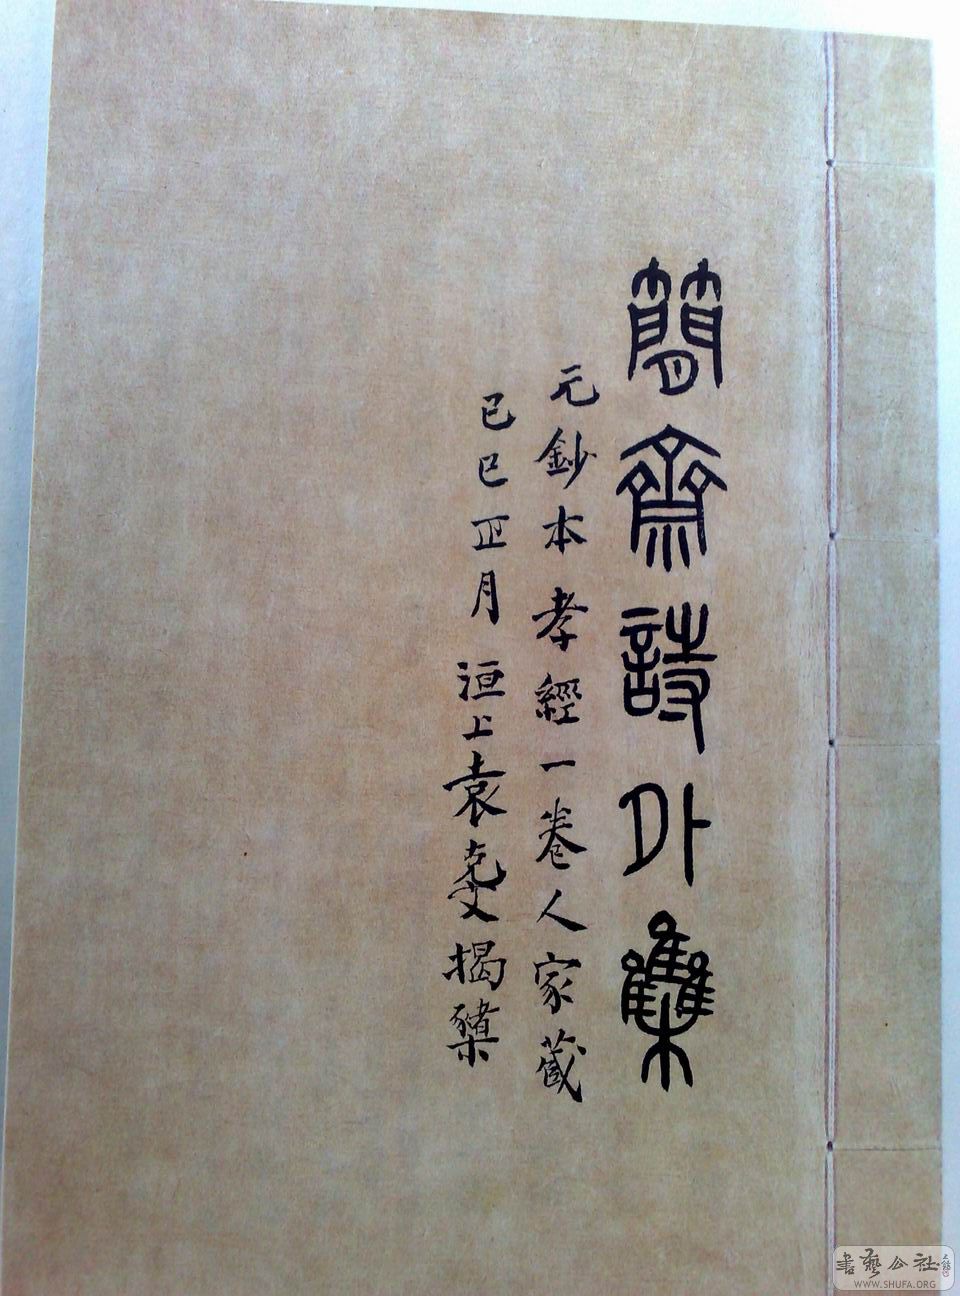 簡齋詩外集
元鈔本孝經一卷人家藏
己巳正月洹上袁克文揭櫫
書藝公社
WWW.SHUFA.ORG